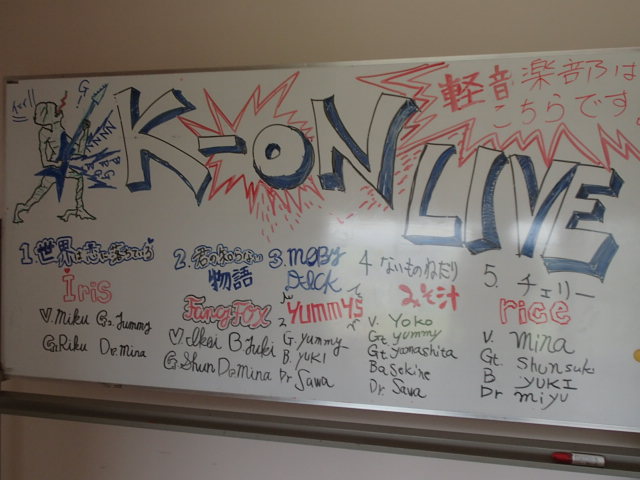 K-ON LIVE
軽音楽部は
こちらです。
1. 世界は恋に落ちている
Iris
V. Miku G. Yummy
G. Riku Dr. Mina
2. 君の知らない
物語
Fung-Fox
V. Ikei B Yuki
G. Shun Dr. Mina
3. MOBY
DICK
YUMMYS
G. yummy
B. YUKI
Dr Sawa
4 ないものねだり
みそ汁
V. Yoko
Gt yummy
Gt. Yamashita
Ba Sekine
Dr. Sawa
5. チェリー
rice
V. mina
Gt. Shunsuke
B YUKI
Dr miyu